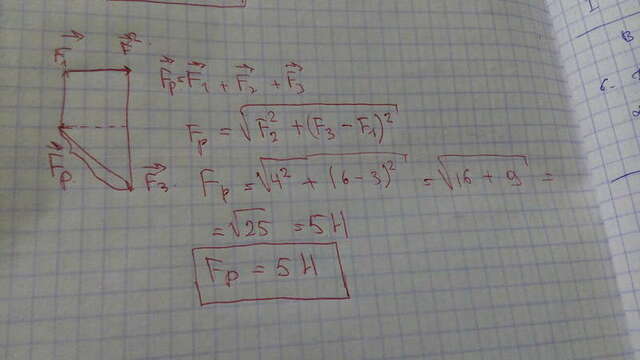 F₁ F₂
F⃗p = F⃗₁ + F⃗₂ + F⃗₃
Fp = √(F₂² + (F₃ − F₁)²)
F⃗p F⃗₃
Fp = √(4² + (6 − 3)²) = √(16 + 9) =
= √25 = 5 Н
Fp = 5 Н